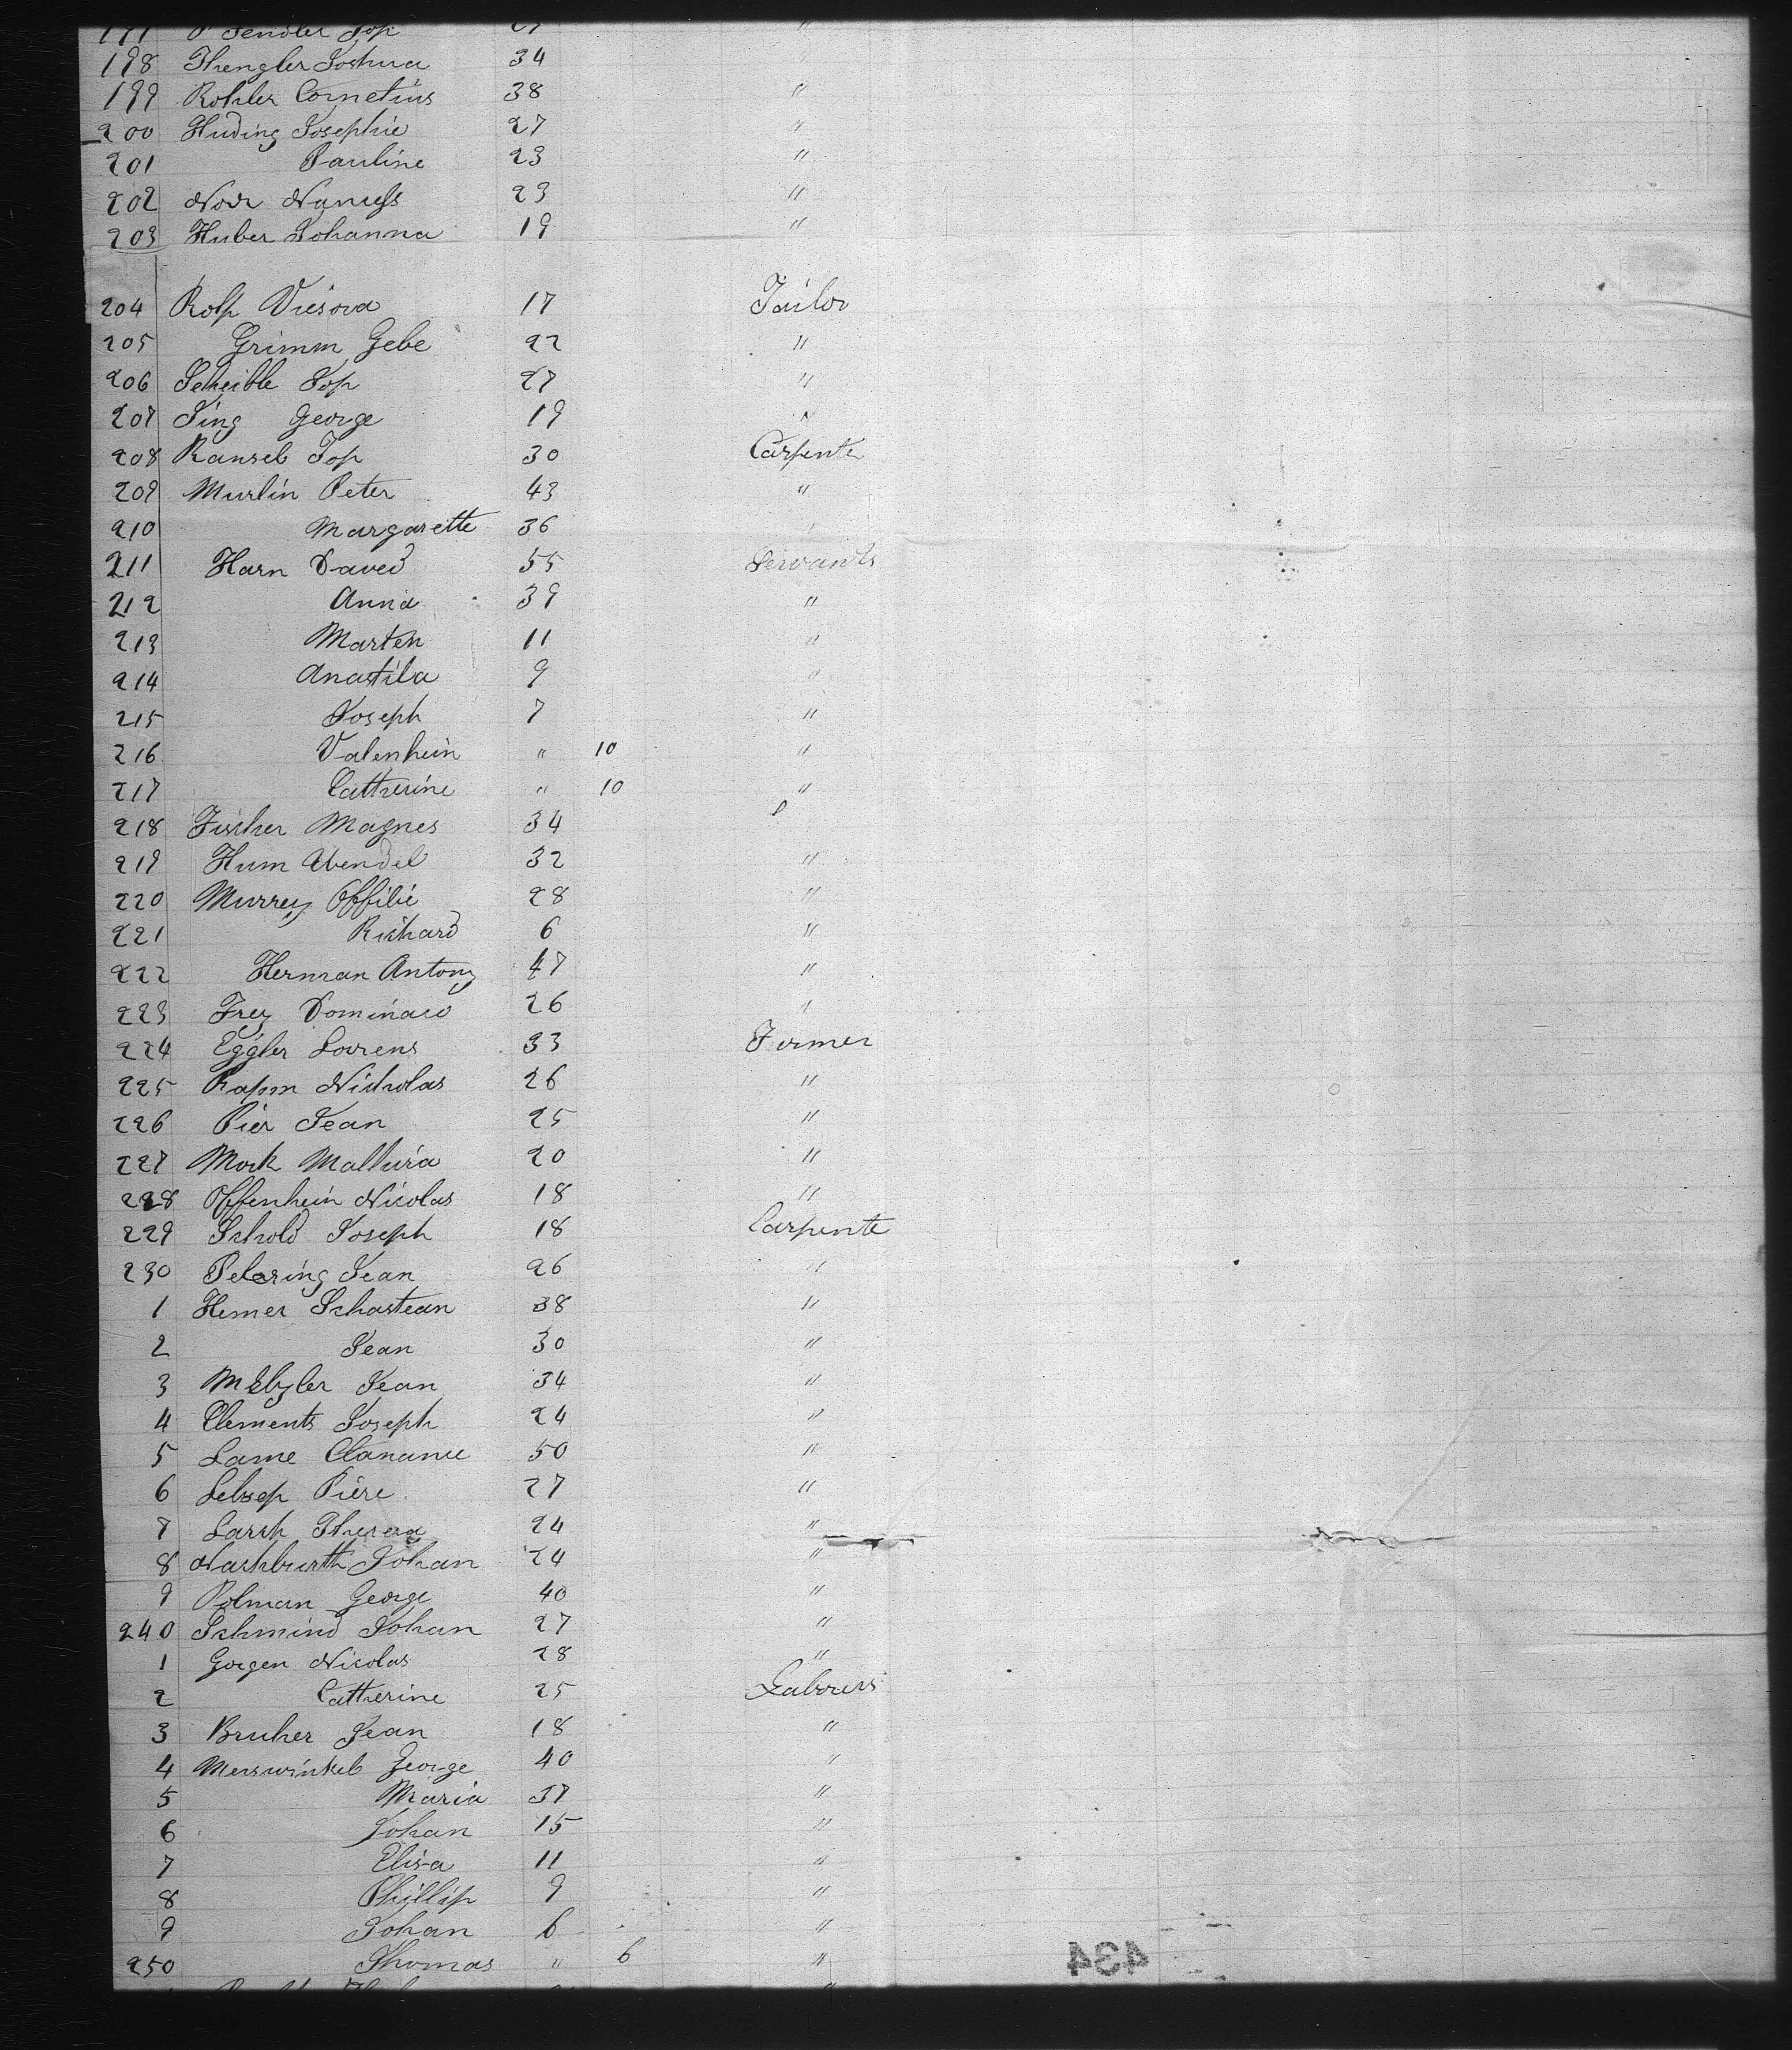 198 Thengler Joshua 34 "
199 Rohler Cornetius 38 "
200 Huding Josephie 27 "
201 Pauline 23 "
202 Noir 23 "
203 Huber Johanna 19 "
204 Rolp Viesova 17 Tailor
205 Grimm Gebe 22 "
206 Scheible Jop 27 "
207 Sing George 19 "
208 Ransel Jop 30 Carpente
209 Murlin Peter 43 "
210 Margarette 36 "
211 Harn Daved 55 Servants
212 Anna 39 "
213 Marten 11 "
214 Anastila 9 "
215 Joseph 7 "
216 Valenhein " 10 "
217 Catherine " 10 "
218 Fischer Magnes 34
219 Hum Wendel 32 "
220 Murrey Offilie 28 "
221 Richard 6 "
222 Herman Antony 47 "
223 Frey 26 "
224 Eggler Lovrens 33 Firmer
225 Rapm Nicholas 26 "
226 Pier Jean 25 "
227 Mock Malluria 20 "
228 Offenhein Nicolas 18 "
229 Schold Joseph 18 Carpente
230 Pelaring Jean 26 "
1 Hemer Schastean 38 "
2 Jean 30 "
3 Jean 34 "
4 Clements Joseph 24 "
5 Lame 50 "
6 Piere 27 "
7 Larsh Theresa 24 "
8 Nashburth Johan 24 "
9 Polman George 40 "
240 Schmind Johan 27 "
1 Gorgen Nicolas 28 "
2 Catherine 25 Labourers
3 Bruher Jean 18 "
4 Merswinkel George 40 "
5 Maria 37 "
6 Johan 15 "
7 Elisa 11 "
8 Phillip 9 "
9 Johan 6 "
250 Thomas " 6 "
434